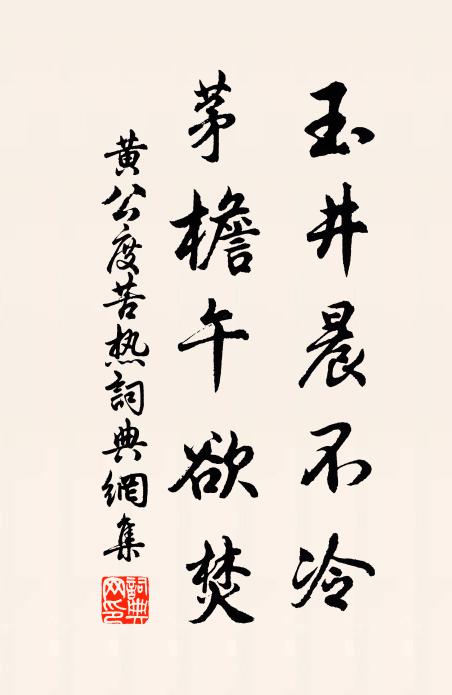 玉井晨不冷
茅檐午欲焚
黄公度苦热詞典網集
詞典网印